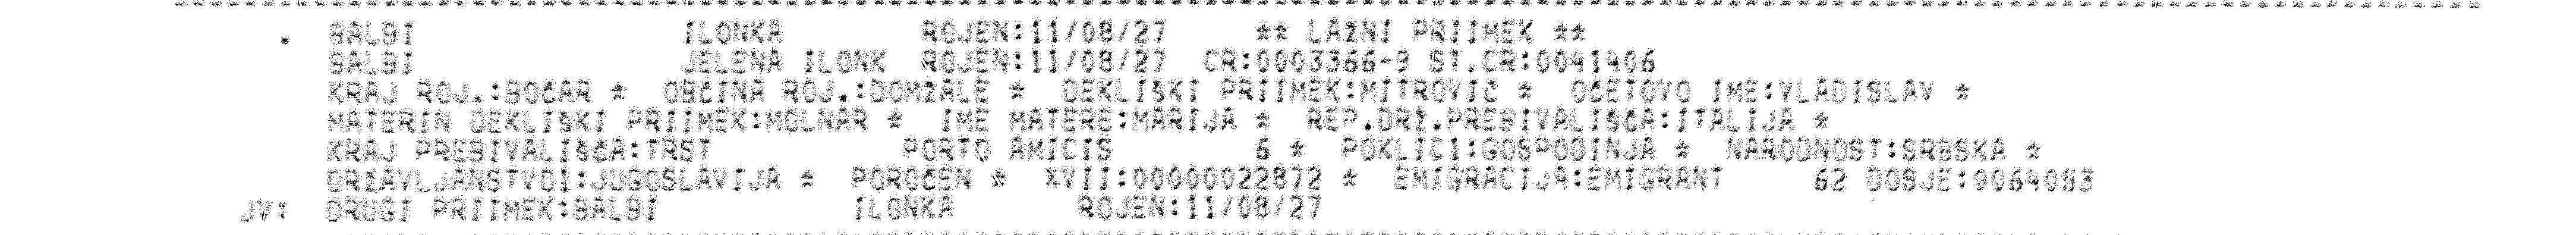 . BALBI ILONKA ROJEN:11/08/27 ** LAŽNI PRIIMEK **
BALBI JELENA ILONK ROJEN:11/08/27 CR:0003366-9 ST.CR:0041406
KRAJ ROJ.:BOČAR * OBČINA ROJ.:DOMŽALE * DEKLIŠKI PRIIMEK:MITROVIČ * OČETOVO IME:VLADISLAV *
MATERIN DEKLIŠKI PRIIMEK:MOLNAR * IME MATERE:MARIJA * REP.DRŽ.PREBIVALIŠČA:ITALIJA *
KRAJ PREBIVALIŠČA:TRST PORTO AMICIS 6 * POKLIC1:GOSPODINJA * NARODNOST:SRBSKA *
DRŽAVLJANSTVO1:JUGOSLAVIJA * POROČEN * XVII:00000022872 * EMIGRACIJA:EMIGRANT 62 DOSJE:0064053
JV: DRUGI PRIIMEK:BALBI ILONKA ROJEN:11/08/27